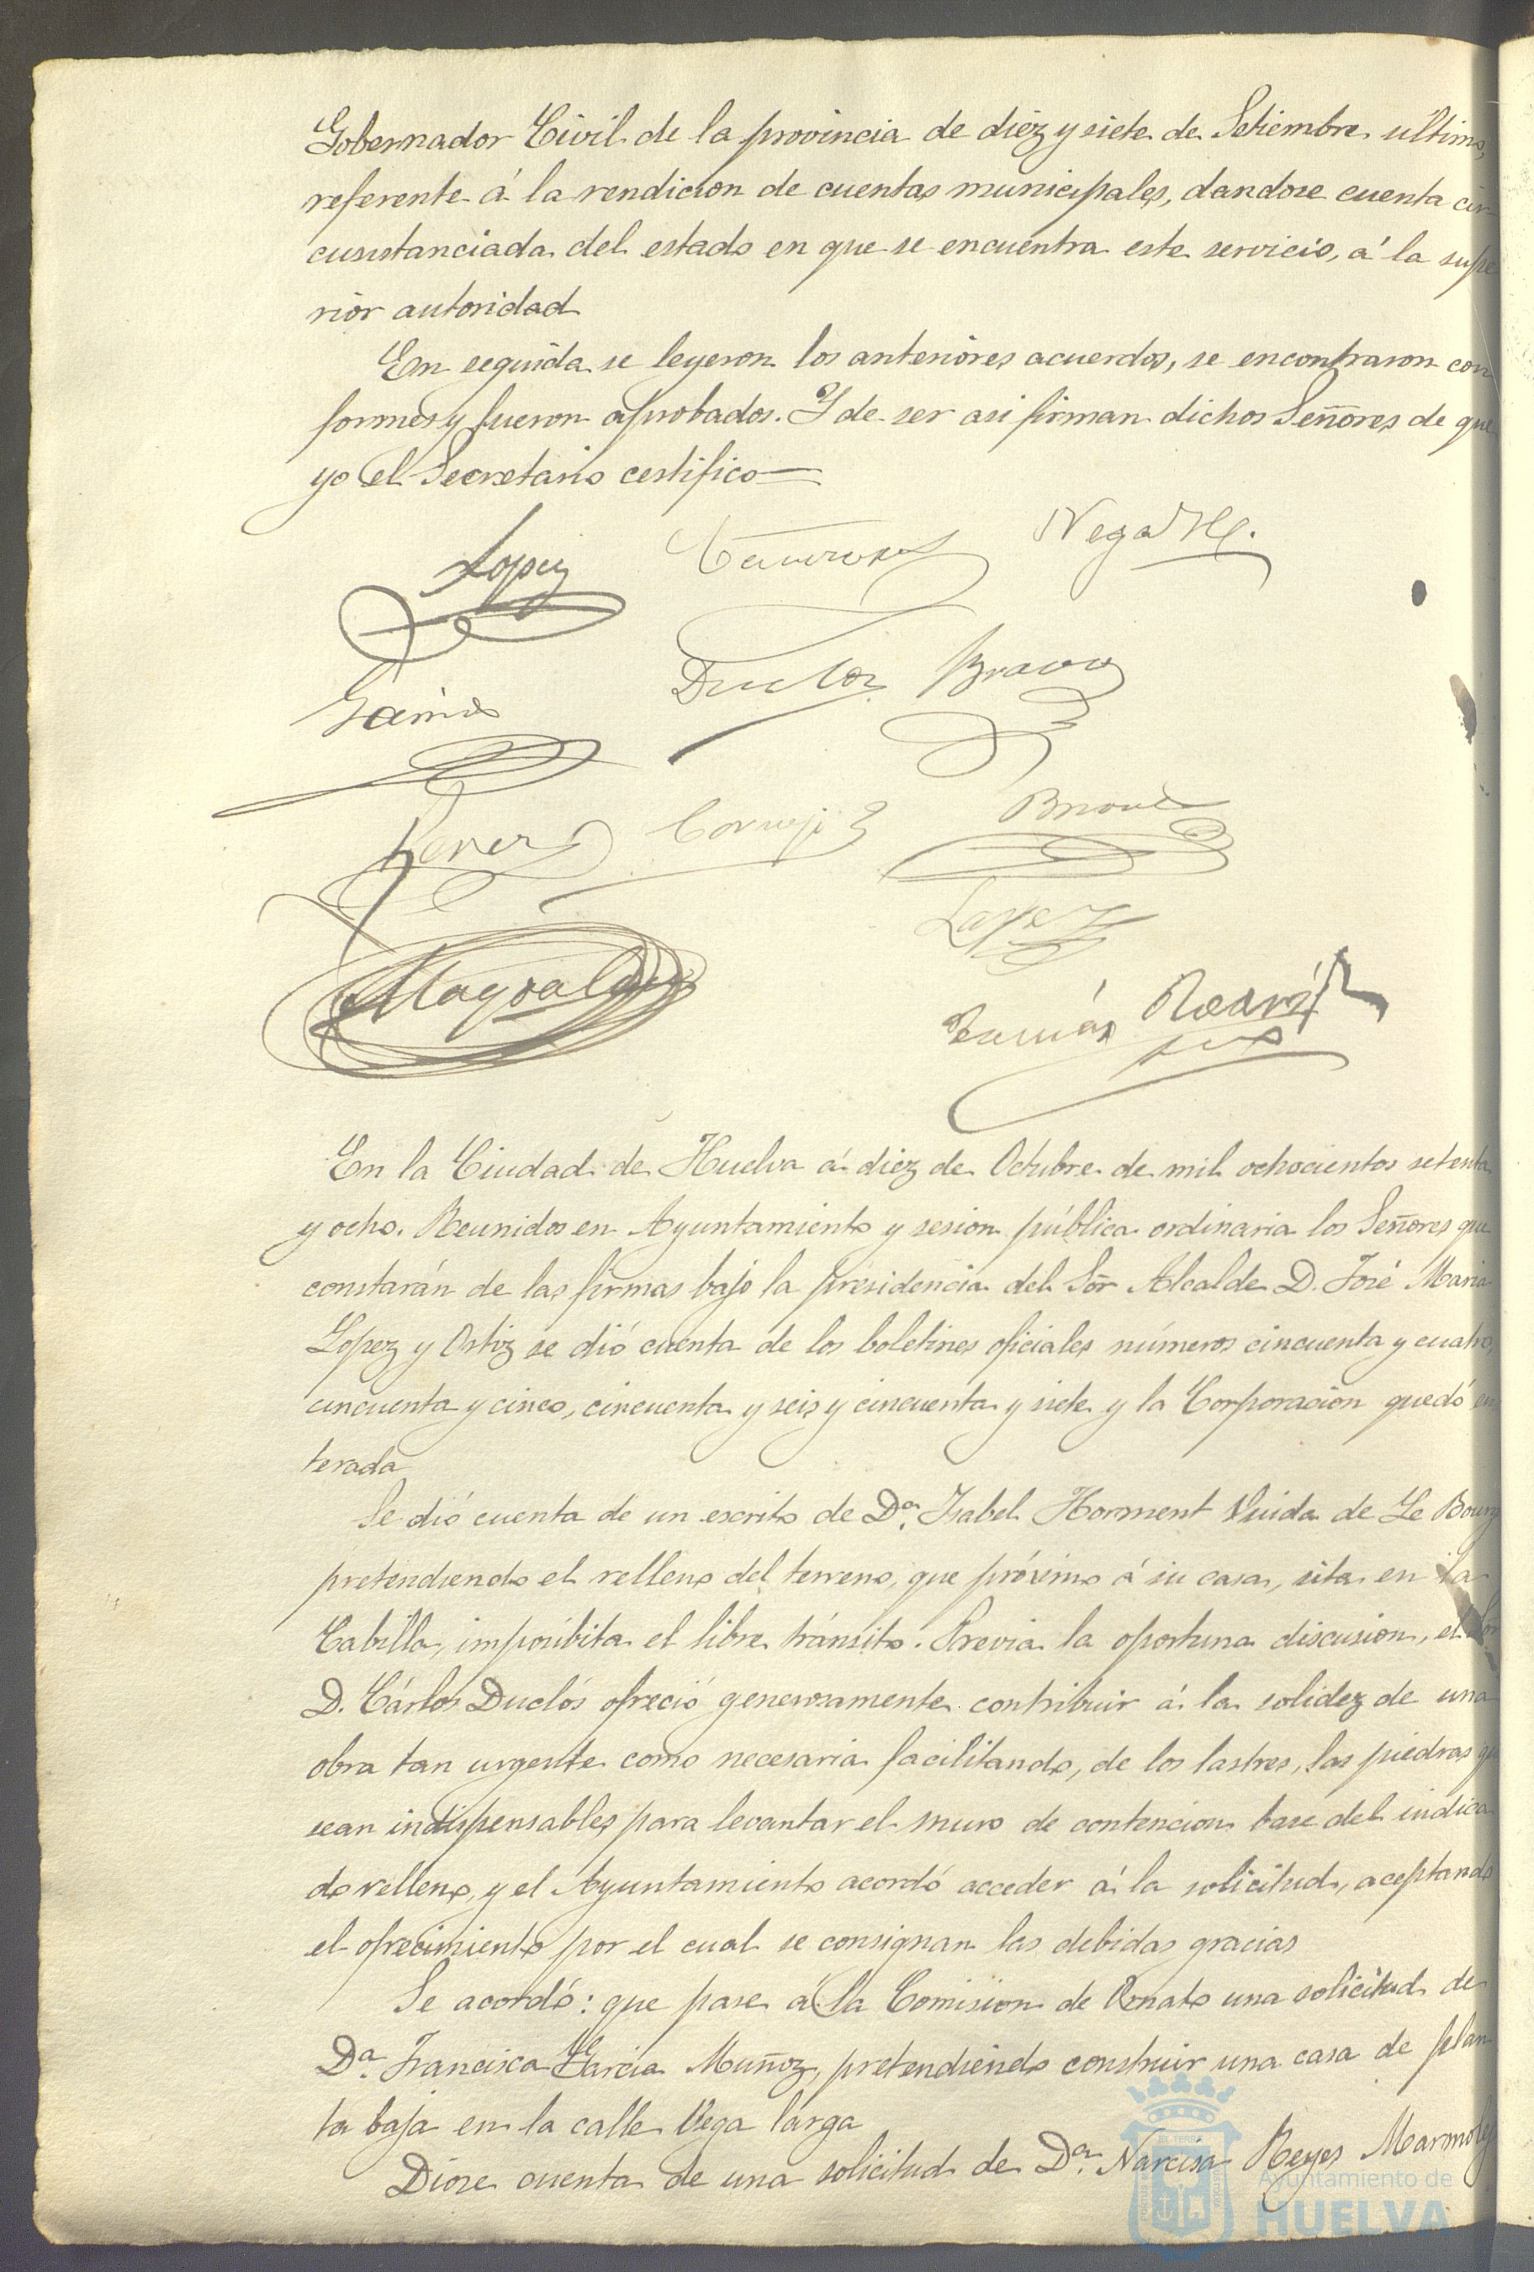 Gobernador Civil de la provincia de diez y siete de Setiembre ultimo,
referente á la rendicion de cuentas municipales, dandose cuenta cir
cunstanciada del estado en que se encuentra este servicio, á la supe
rior autoridad
En seguida se leyeron los anteriores acuerdos, se encontraron con
formes y fueron aprobados. Y de ser asi firman dichos Señores de que
yo el Secretario certifico
Lopez
Vega
Garcia
Duclós Bravo
Perez Cornejo
Lopez
Tomás
En la Ciudad de Huelva á diez de Octubre de mil ochocientos setenta
y ocho. Reunidos en Ayuntamiento y sesion pública ordinaria los Señores que
constarán de las firmas bajo la presidencia del Sor Alcalde D. José Maria
Lopez y Ortiz se dió cuenta de los boletines oficiales números cincuenta y cuatro,
cincuenta y cinco, cincuenta y seis y cincuenta y siete y la Corporacion quedó en
terada
Se dió cuenta de un escrito de Da. Isabel Horment Viuda de Le Bourg
pretendiendo el relleno del terreno, que próximo á su casa, sita en la
Cabilla, imposibita el libre tránsito. Previa la oportuna discusion, el Sor
D. Cárlos Duclós ofreció generosamente contribuir á la solidez de una
obra tan urgente como necesaria facilitando, de los lastres, las piedras que
sean indispensables para levantar el muro de contencion base del indica
do relleno, y el Ayuntamiento acordó acceder á la solicitud, aceptando
el ofrecimiento por el cual se consignan las debidas gracias
Se acordó: que pase á la Comision de Ornato una solicitud de
Da. Francisca Garcia Muñoz, pretendiendo construir una casa de plan
ta baja en la calle Vega larga
Diose cuenta de una solicitud de Da. Narcisa Reyes Marmolejo
Ayuntamiento de
HUELVA